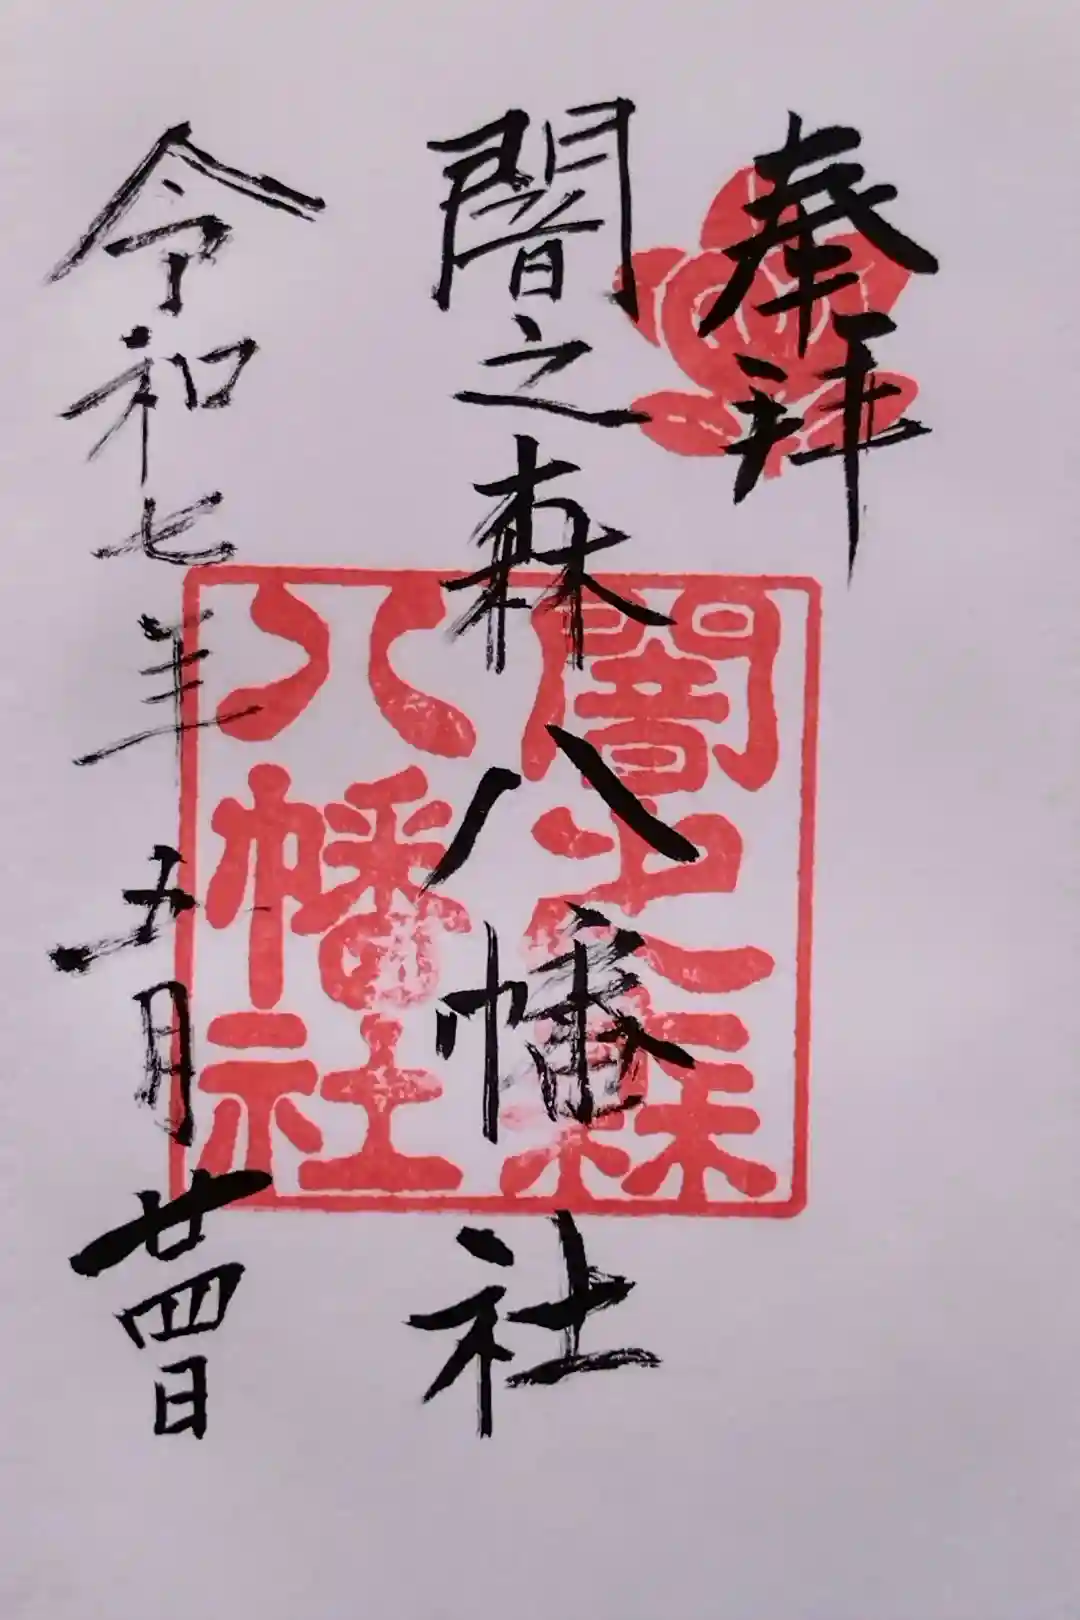 奉拜
闇之森八幡社
令和七年五月廿四日
闇之森
八幡社